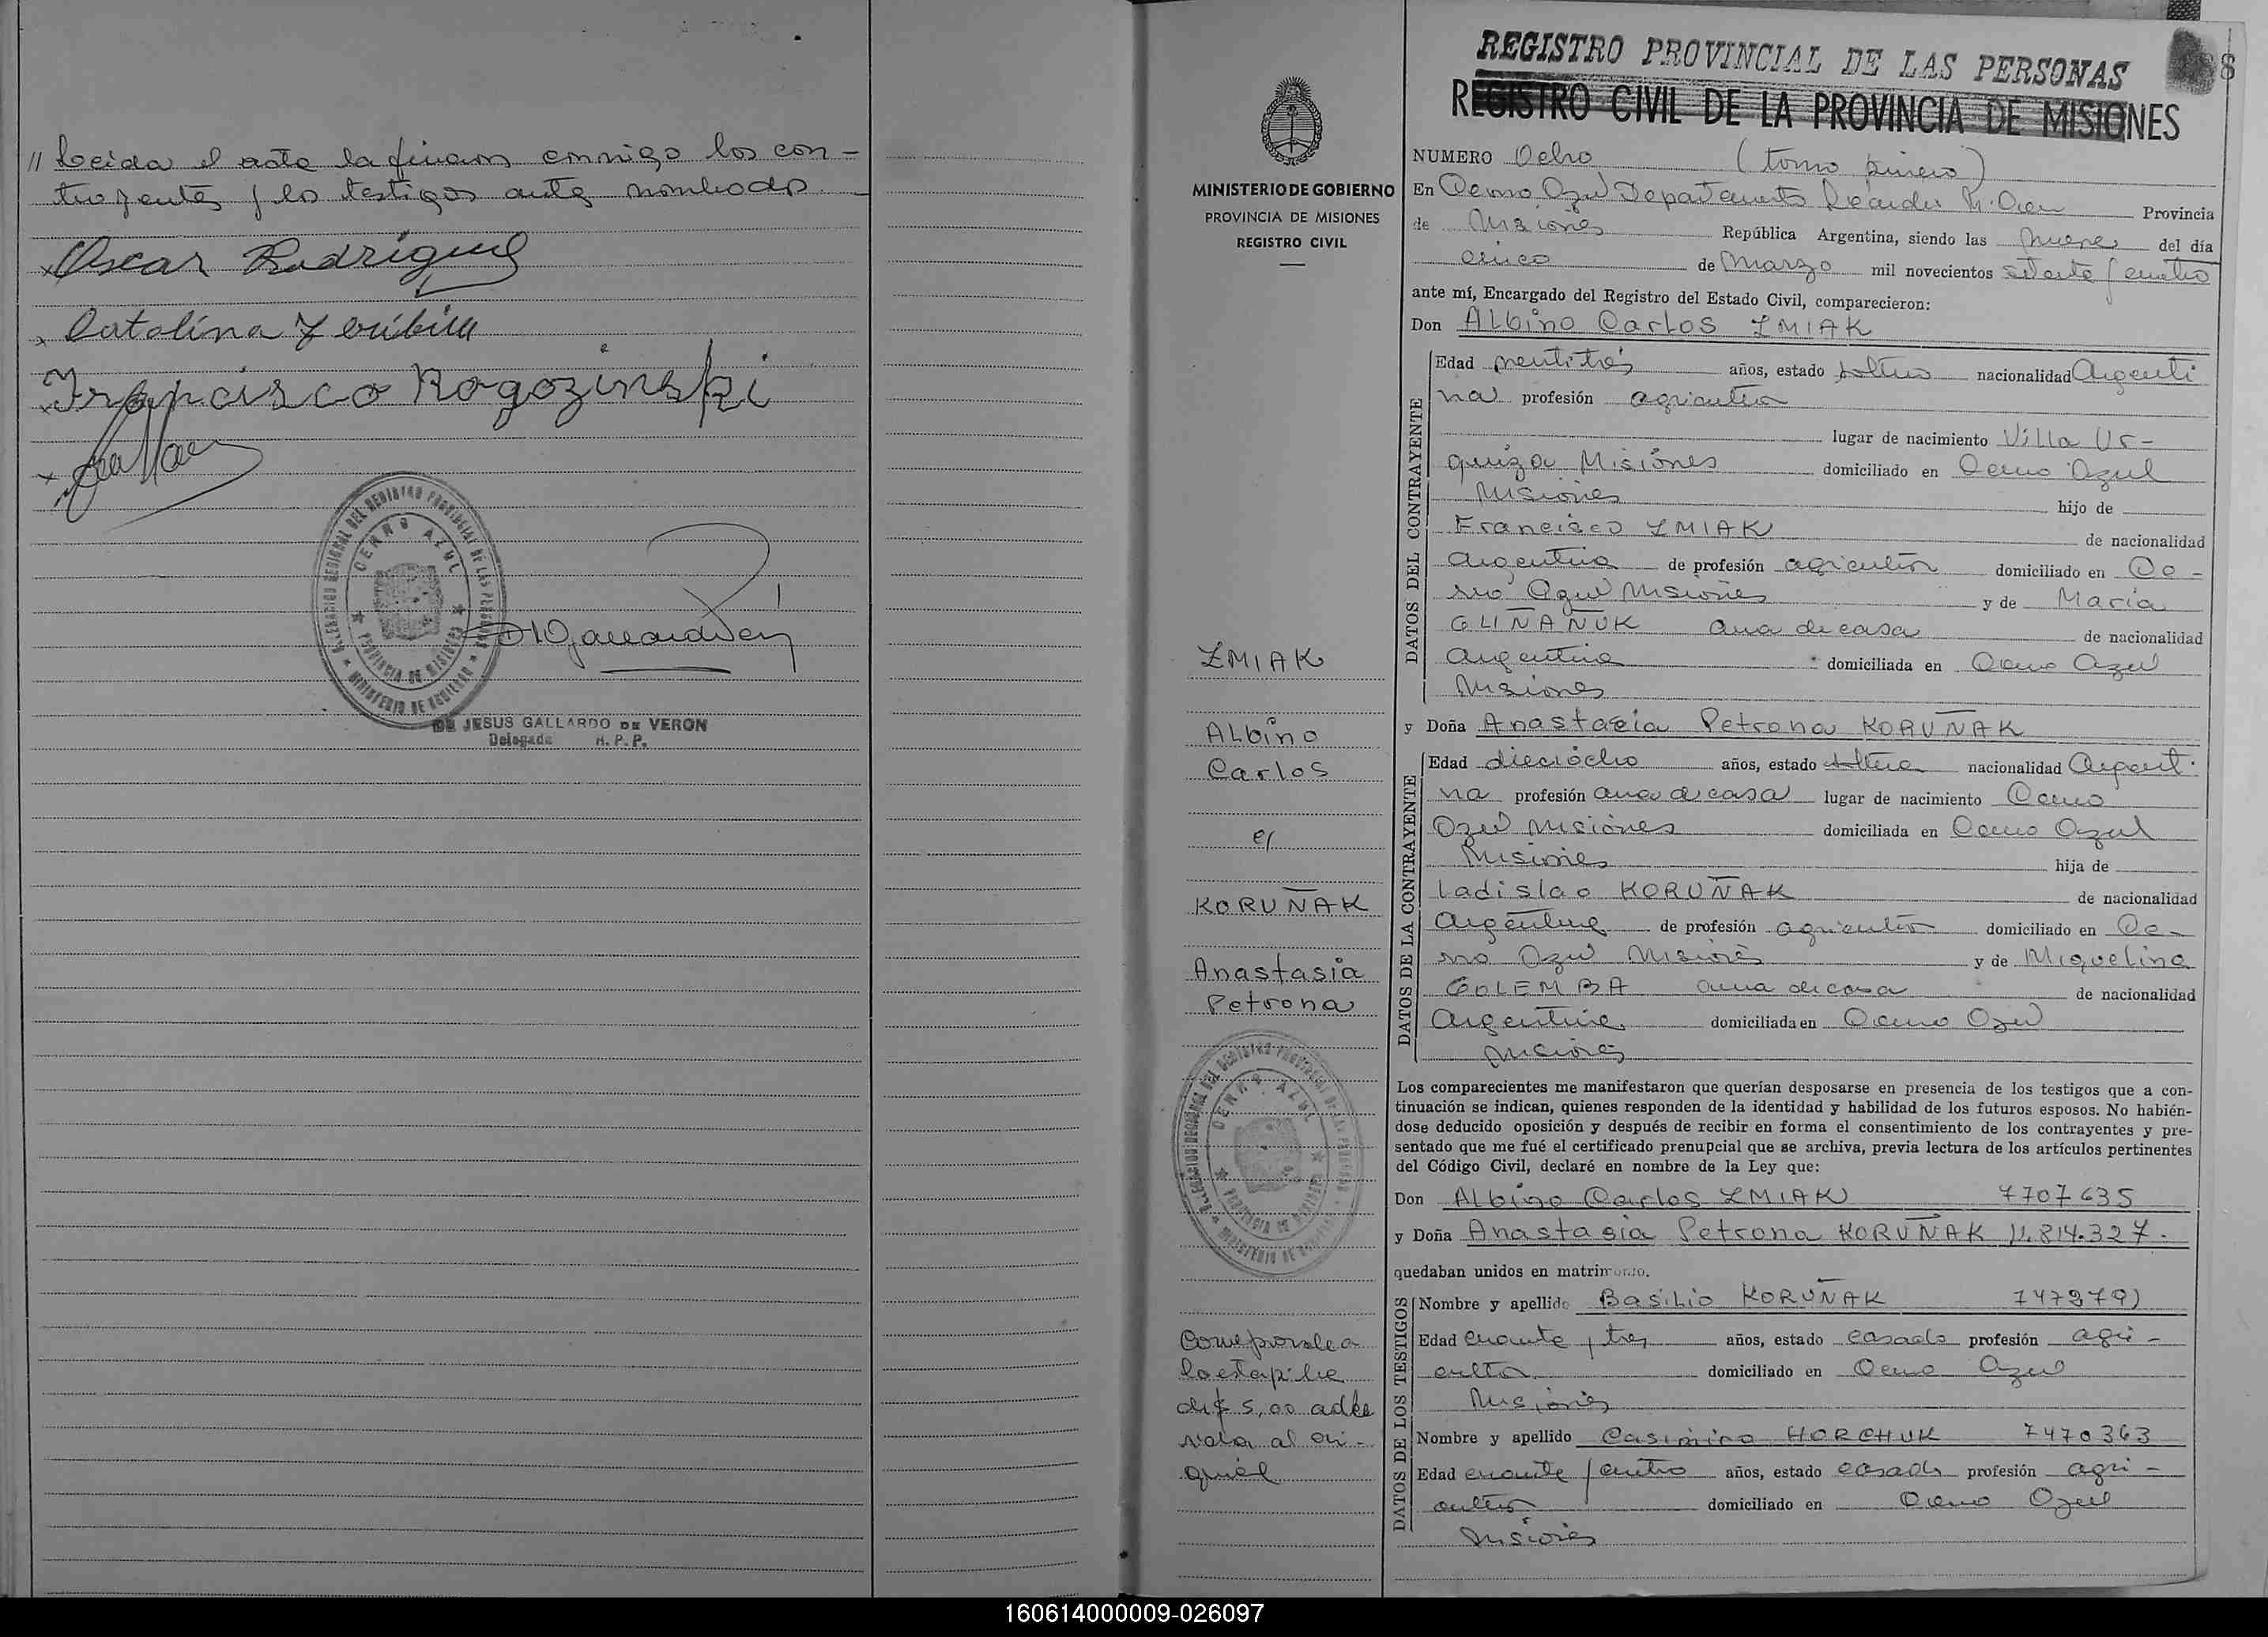 // Leida el acta la firman conmigo los con-
trayentes y los testigos ante nombrados.
Oscar Rodriguez
Catalina
Francisco Rogozinski
DELEGACION REGIONAL DEL REGISTRO PROVINCIAL DE LAS PERSONAS
CERRO AZUL
PROVINCIA DE MISIONES
MINISTERIO DE GOBIERNO
DE JESUS GALLARDO DE VERON
Delegada R.P.P.
MINISTERIO DE GOBIERNO
PROVINCIA DE MISIONES
REGISTRO CIVIL
ZMIAK
Albino
Carlos
c/
KORUÑAK
Anastasia
Petrona
DELEGACION REGIONAL DEL REGISTRO PROVINCIAL DE LAS PERSONAS
CERRO AZUL
PROVINCIA DE MISIONES
MINISTERIO DE GOBIERNO
Corresponde a
la estapilla
de $ 5,00 adhe
rida al ori-
ginal
REGISTRO PROVINCIAL DE LAS PERSONAS
REGISTRO CIVIL DE LA PROVINCIA DE MISIONES
NUMERO Ocho (tomo primero)
En Cerro Azul Departamento Leandro N. Alem Provincia
de Misiones República Argentina, siendo las nueve del día
cinco de Marzo mil novecientos setenta y cuatro
ante mí, Encargado del Registro del Estado Civil, comparecieron:
Don Albino Carlos ZMIAK
DATOS DEL CONTRAYENTE
Edad veintitrés años, estado soltero nacionalidad Argenti
na profesión agricultor
lugar de nacimiento Villa Ur-
quiza Misiones domiciliado en Cerro Azul
Misiones hijo de
Francisco ZMIAK de nacionalidad
argentina de profesión agricultor domiciliado en Ce-
rro Azul Misiones y de María
GLIÑAÑUK ama de casa de nacionalidad
argentina domiciliada en Cerro Azul
Misiones
y Doña Anastacia Petrona KORUÑAK
DATOS DE LA CONTRAYENTE
Edad dieciocho años, estado soltera nacionalidad Argenti
na profesión ama de casa lugar de nacimiento Cerro
Azul Misiones domiciliada en Cerro Azul
Misiones hija de
Ladislao KORUÑAK de nacionalidad
Argentina de profesión agricultor domiciliado en Ce-
rro Azul Misiones y de Miguelina
GOLEMBA ama de casa de nacionalidad
Argentina domiciliada en Cerro Azul
Misiones
Los comparecientes me manifestaron que querían desposarse en presencia de los testigos que a con-
tinuación se indican, quienes responden de la identidad y habilidad de los futuros esposos. No habién-
dose deducido oposición y después de recibir en forma el consentimiento de los contrayentes y pre-
sentado que me fué el certificado prenupcial que se archiva, previa lectura de los artículos pertinentes
del Código Civil, declaré en nombre de la Ley que:
Don Albino Carlos ZMIAK 7707635
y Doña Anastasia Petrona KORUÑAK 11.814.327.
quedaban unidos en matrimonio.
DATOS DE LOS TESTIGOS
Nombre y apellido Basilio KORUÑAK
Edad cuarenta y tres años, estado casado profesión agri-
cultor domiciliado en Cerro Azul
Misiones
Nombre y apellido Casimiro HORCHUK 7470363
Edad cuarenta y cuatro años, estado casado profesión agri-
cultor domiciliado en Cerro Azul
Misiones
160614000009-026097